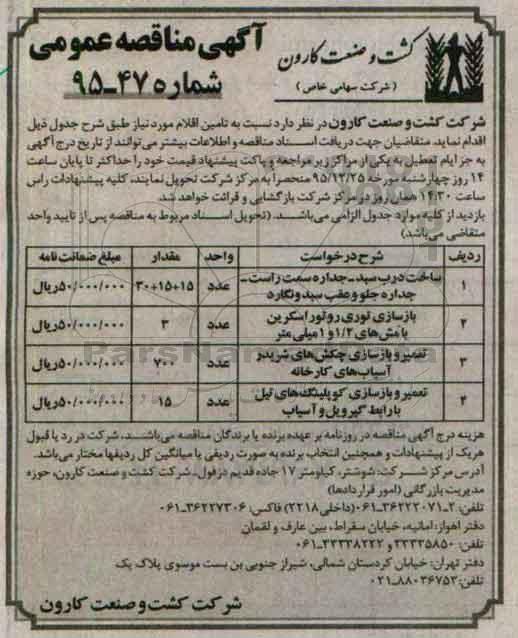 آگهی مناقصه عمومی
شماره ۴۷_۹۵
کشت و صنعت کارون
(شرکت سهامی خاص)
شرکت کشت و صنعت کارون در نظر دارد نسبت به تامین اقلام مورد نیاز طبق شرح جدول ذیل
اقدام نماید. متقاضیان جهت دریافت اسناد مناقصه و اطلاعات بیشتر می‌توانند از تاریخ درج آگهی
به جز ایام تعطیل به یکی از مراکز زیر مراجعه و پاکت پیشنهاد قیمت خود را حداکثر تا پایان ساعت
۱۴ روز چهارشنبه مورخه ۹۵/۱۲/۲۵ منحصراً به مرکز شرکت تحویل نمایند، کلیه پیشنهادات راس
ساعت ۱۴:۳۰ همان روز در مرکز شرکت بازگشایی و قرائت خواهد شد.
بازدید از کلیه موارد جدول الزامی می‌باشد. (تحویل اسناد مربوط به مناقصه پس از تایید واحد
متقاضی می‌باشد)
ردیف شرح درخواست واحد مقدار مبلغ ضمانت نامه
۱ ساخت درب سبد_جداره سمت راست_ جداره جلو و عقب سبد ونگارد عدد ۱۵+۱۵+۳۰ ۵۰/۰۰۰/۰۰۰ریال
۲ بازسازی توری روتور اسکرین با مش‌های ۱/۲ و ۱ میلی متر عدد ۳ ۵۰/۰۰۰/۰۰۰ریال
۳ تعمیر و بازسازی چکش‌های شریدر آسیاب‌های کارخانه عدد ۷۰۰ ۵۰/۰۰۰/۰۰۰ریال
۴ تعمیر و بازسازی کوپلینگ‌های تیل بار رابط گیرویل و آسیاب عدد ۱۵ ۵۰/۰۰۰/۰۰۰ریال
هزینه درج آگهی مناقصه در روزنامه بر عهده برنده یا برندگان مناقصه می‌باشند. شرکت در رد یا قبول
هریک از پیشنهادات و همچنین انتخاب برنده به صورت ردیفی یا میانگین کل ردیفها مختار می‌باشد.
آدرس مرکز شرکت: شوشتر، کیلومتر ۱۷ جاده قدیم دزفول_شرکت کشت و صنعت کارون، حوزه
مدیریت بازرگانی (امور قراردادها)
تلفن: ۲_۳۶۲۲۲۰۷۱_۰۶۱(داخلی۲۲۱۸) فاکس: ۳۶۲۲۷۳۰۶_۰۶۱
دفتر اهواز: امانیه، خیابان سقراط، بین عارف و لقمان
تلفن: ۳۳۳۳۵۸۵۰ و ۳۳۳۳۸۲۲۲_۰۶۱
دفتر تهران: خیابان کردستان شمالی، شیراز جنوبی بن بست موسوی پلاک یک
تلفن: ۸۸۰۳۶۷۵۳_۰۲۱
شرکت کشت و صنعت کارون